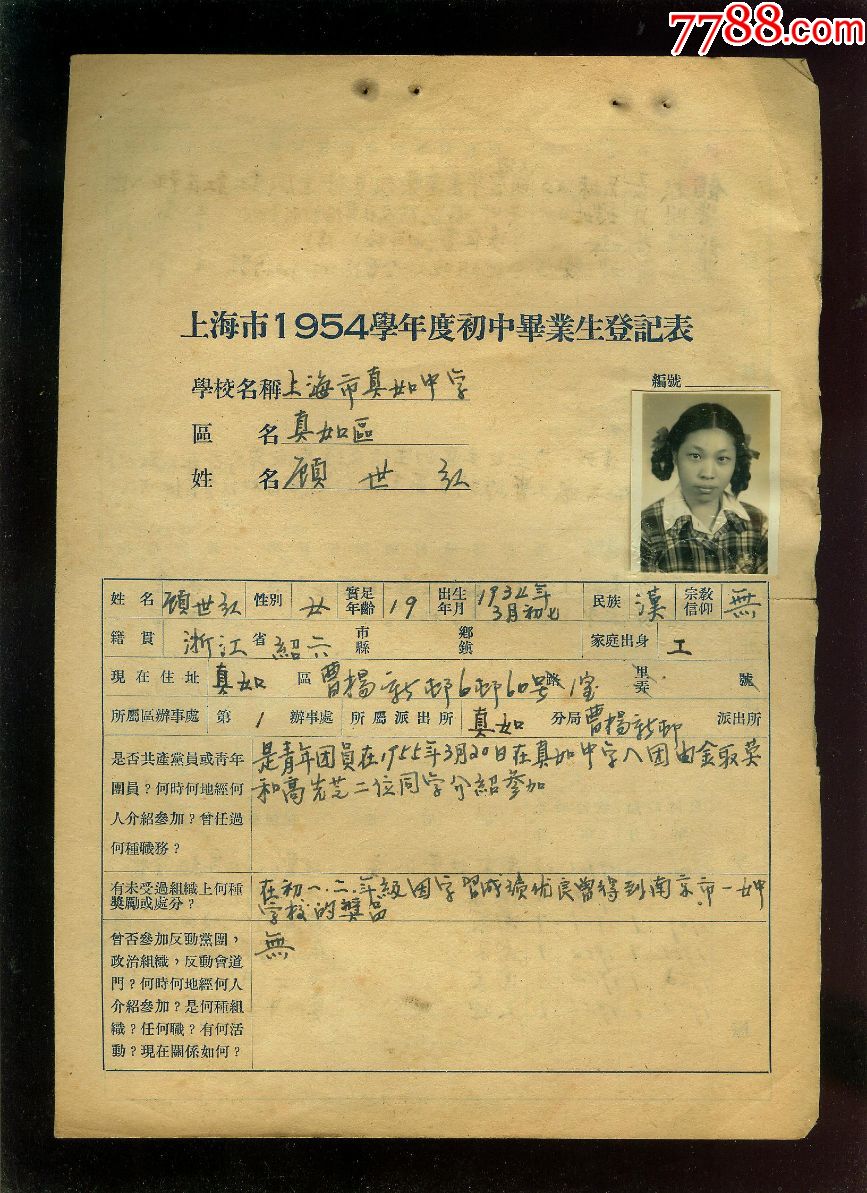 7788.com
上海市1954學年度初中畢業生登記表
編號
學校名稱 上海市真如中学
區 名 真如區
姓 名 顾世
姓名 顾世 性別 女 實足年齡 19 出生年月 年3月初七 民族 漢 宗教信仰 無
籍貫 浙江省 紹 市縣 鄉鎮 家庭出身 工
現在住址 真如 區 曹楊新邨6邨60号 路 1室 里弄 號
所屬區辦事處 第1辦事處 所屬派出所 真如 分局 曹楊新邨 派出所
是否共產黨員或青年
團員？何時何地經何
人介紹參加？曾任過
何種職務？
是青年团員在1955年3月20日在真如中学入团由金
和高 二位同学介紹參加
有未受過組織上何種
獎勵或處分？
在初一.二.年級因学習成績优良曾得到南京市一女中
学校的獎品
曾否參加反動黨團，
政治組織，反動會道
門？何時何地經何人
介紹參加？是何種組
織？任何職？有何活
動？現在關係如何？
無